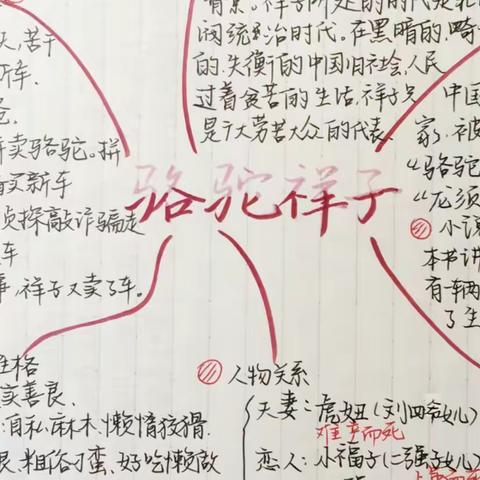 背景。祥子所处的时代是北
阀统治时代。在黑暗的,畸
的.失衡的中国旧社会,人民
过着贫苦的生活,祥子只
是广大劳苦大众的代表.
天,苦干
开车.
卖骆驼。拼
买新车
侦探敲诈骗走
车
事,祥子又卖了车。
骆驼祥子
中国
家,被
“骆驼
“尤须
小说
本书讲
有一辆
了生
性格
善良.
:自私麻木、懒惰狡猾.
粗俗刁蛮、好吃懒做
人物关系
夫妻:虎妞(刘四爷女儿)
难产而死
恋人:小福子(二强子女儿)